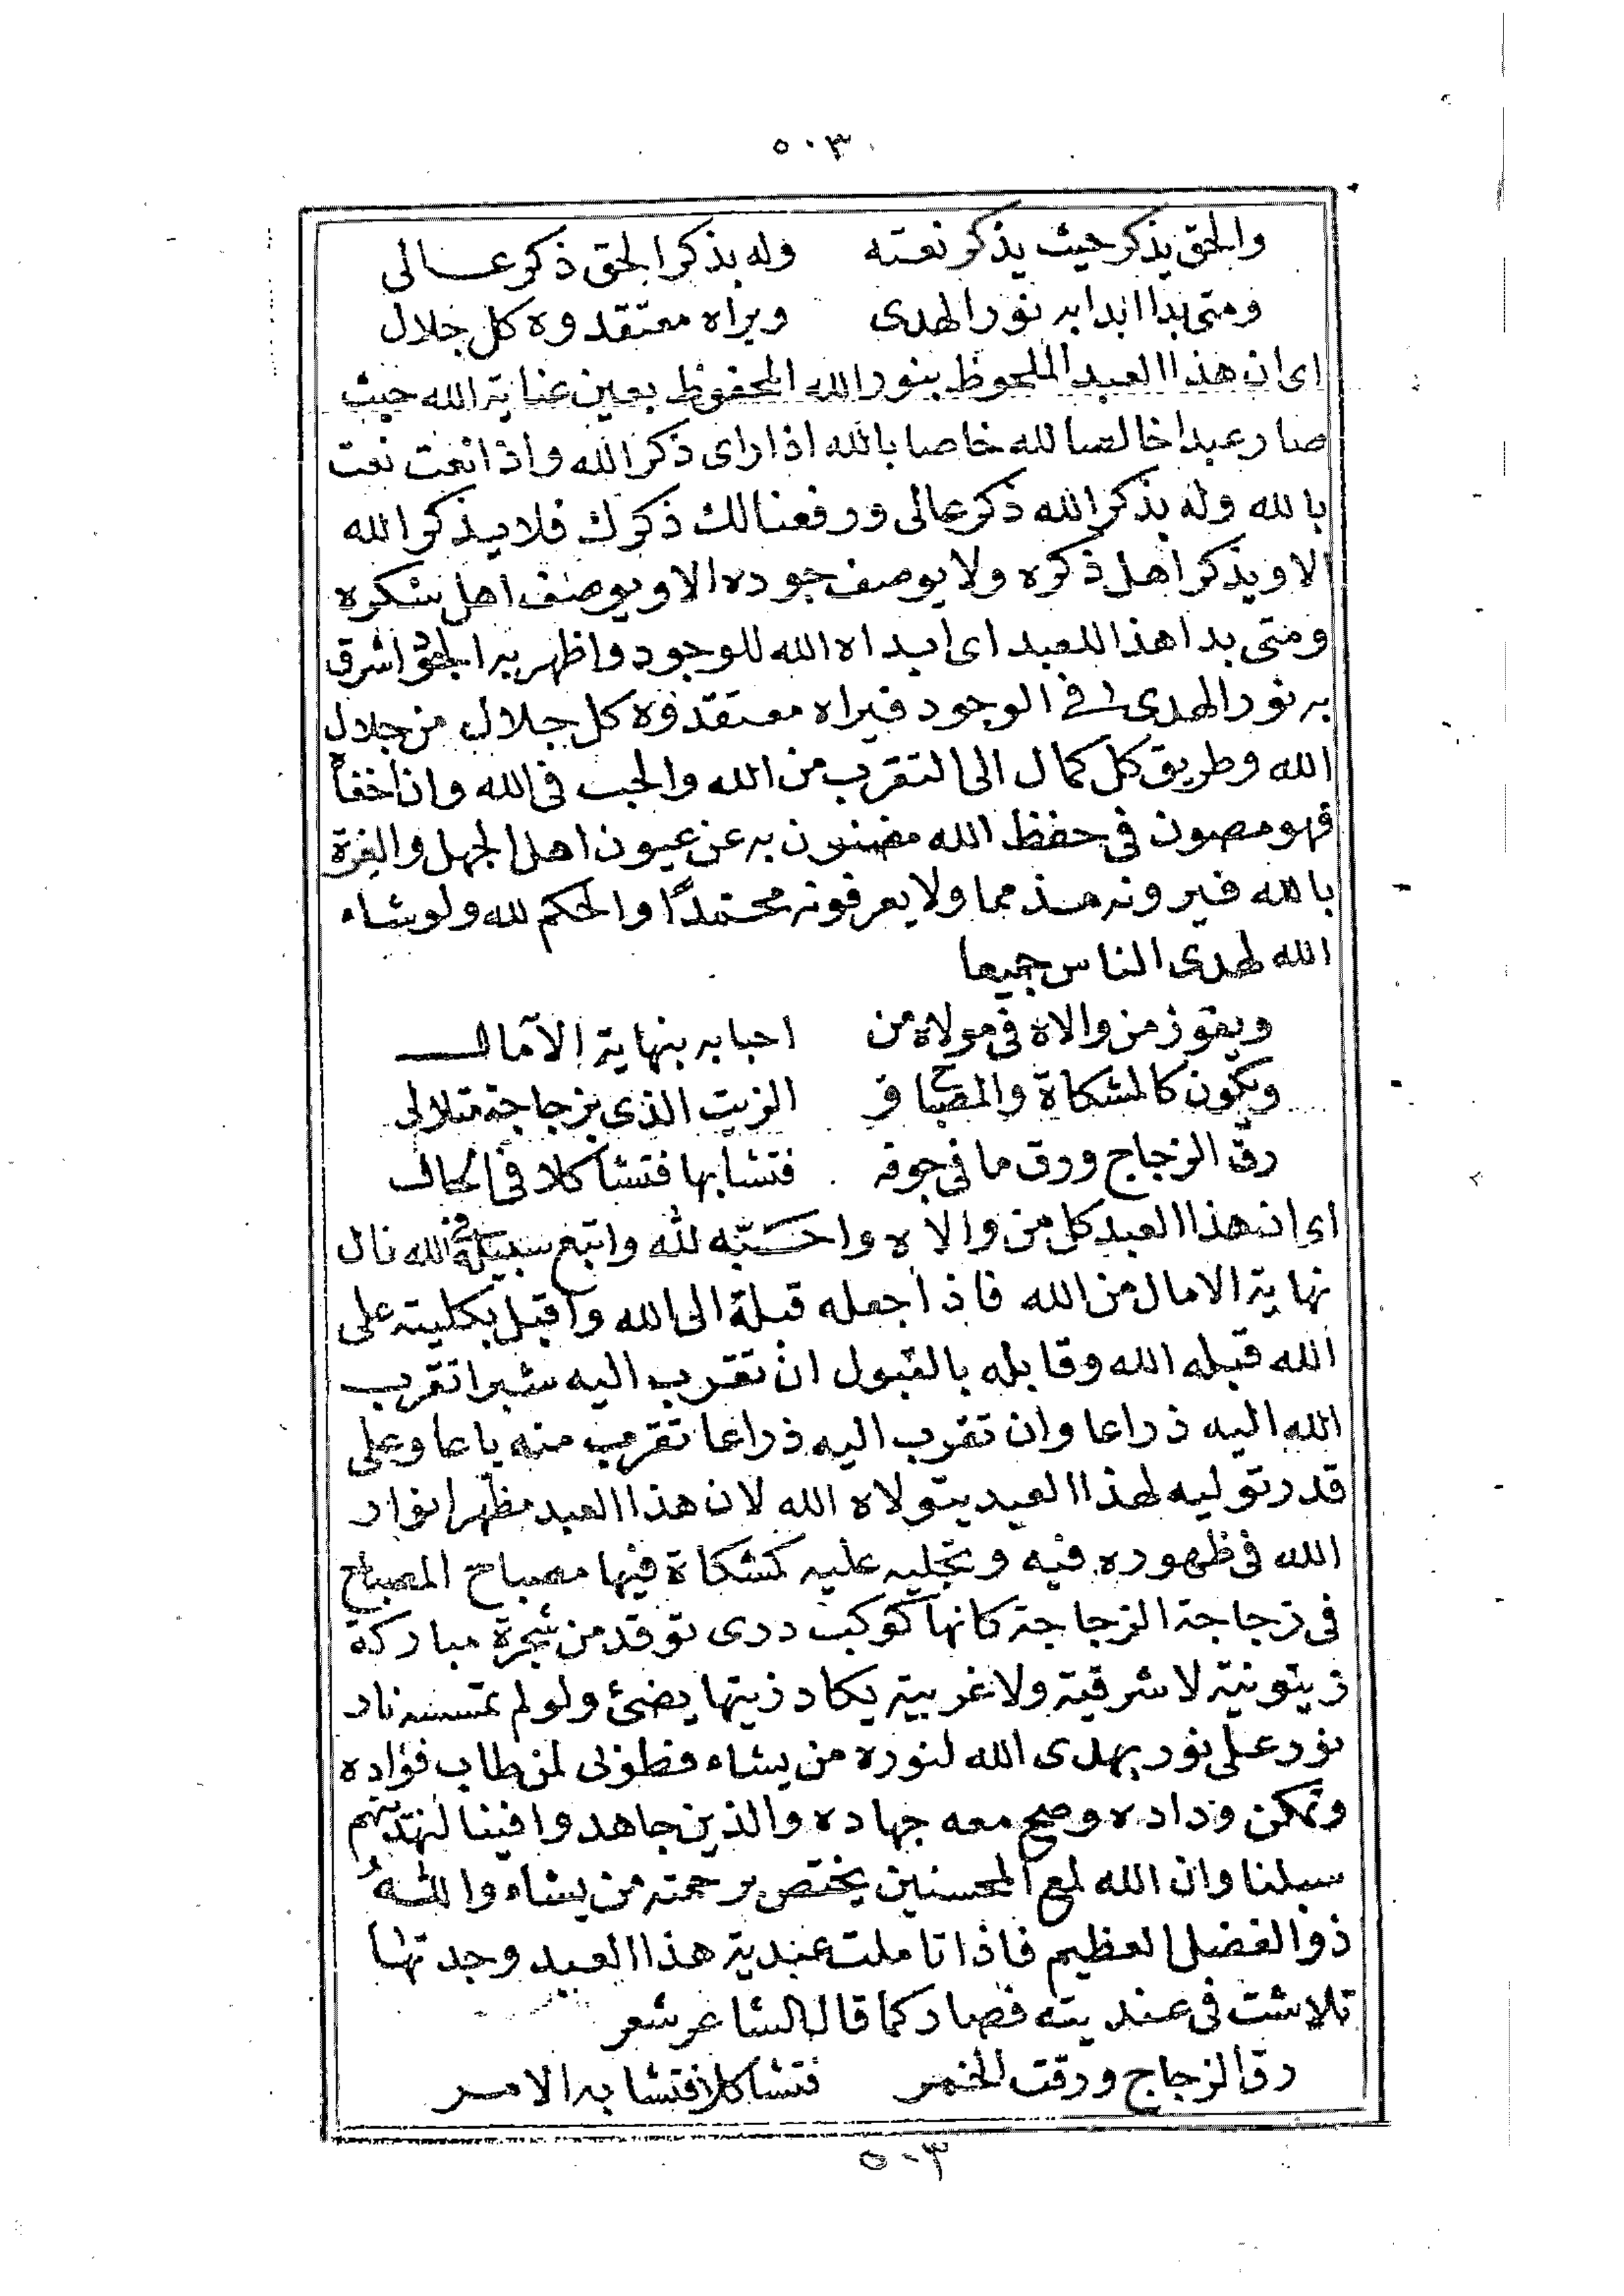 ٥٠٣
والحق يذكر حيث يذكر نعته وله بذكر الحق ذكر عالى
ومتى بدا ابدا به نور الهدى ويراه معتقدوه كل جلال
اى ان هذا العبد الملحوظ بنور الله المحفوظ بعين عناية الله حيث
صار عبدا خالصا لله خاصا بالله اذا راى ذكر الله واذا نعت نعت
بالله وله بذكر الله ذكر عالى ورفعنا لك ذكرك فلا يذكر الله
الا ويذكر اهل ذكره ولا يوصف جوده الا ويوصف اهل شكره
ومتى بدا هذا العبد اى ابداه الله للوجود واظهر به الجود اشرق
به نور الهدى فى الوجود فيراه معتقدوه كل جلال من جلال
الله وطريق كل كمال الى التقرب من الله والحب فى الله وان اخفاه
فهو مصون فى حفظ الله مضنون به عن عيون اهل الجهل والغرة
بالله فيرونه مذمما ولا يعرفونه محمدًا والحكم لله ولو شاء
الله لهدى الناس جميعا
ويفوز من والاه فى مولاه من احبابه بنهاية الآمال
ويكون كالمشكاة والمصباح فى الزيت الذى بزجاجة متلالى
رق الزجاج ورق ما فى جوفه فتشابها فتشاكلا فى الحال
اى ان هذا العبد كل من والاه واحبّه لله واتبع سبيله فى الله نال
نهاية الامال من الله فاذا جعله قبلة الى الله واقبل بكليته على
الله قبله الله وقابله بالقبول ان تقرب اليه شبرا تقرب
الله اليه ذراعا وان تقرب اليه ذراعا تقرب منه باعا وعلى
قدر توليه لهذا العبد يتولاه الله لان هذا العبد مظهر انوار
الله فى ظهوره فيه وتجليه عليه كمشكاة فيها مصباح المصباح
فى زجاجة الزجاجة كانها كوكب درى توقد من شجرة مباركة
زيتونية لا شرقية ولا غربية يكاد زيتها يضئ ولو لم تمسسه نار
نور على نور يهدى الله لنوره من يشاء فطوبى لمن طاب فؤاده
وتمكن وداده وصح معه جهاده والذين جاهدوا فينا لنهدينهم
سبلنا وان الله لمع المحسنين يختص برحمته من يشاء واللهُ
ذو الفضل العظيم فاذا تاملت عندية هذا العبد وجدتها
تلاشت فى عنديته فصار كما قال الشاعر شعر
رق الزجاج ورقت الخمر فتشاكلا فتشابه الامر
٥٠٣